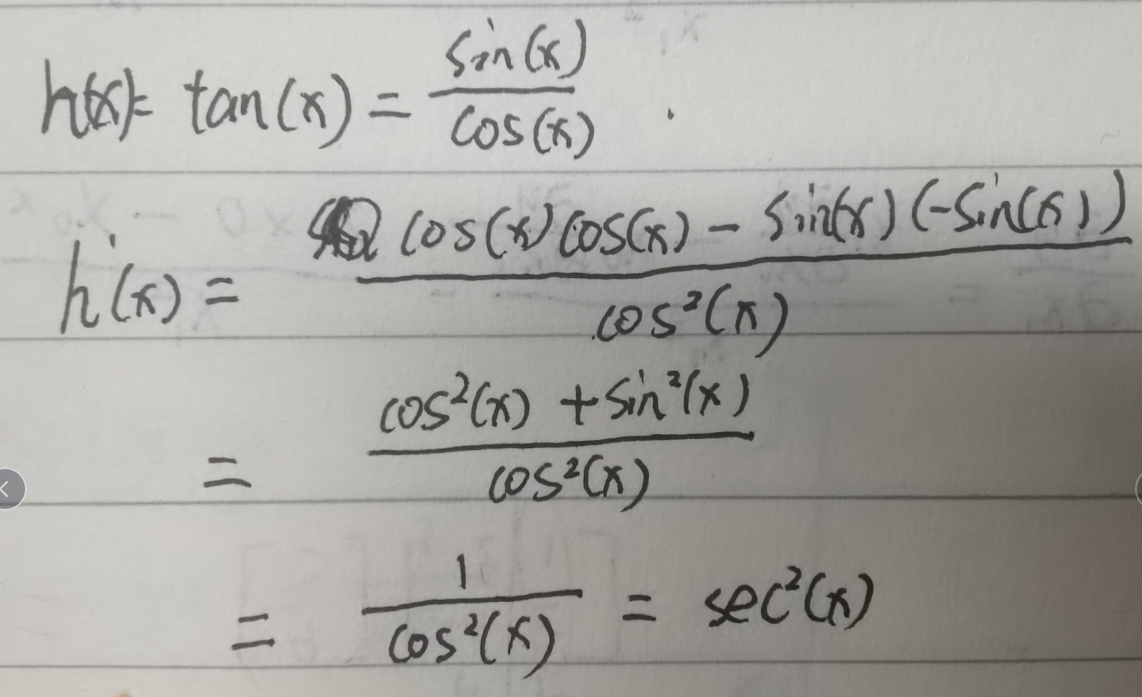 h(x) = tan(x) = sin(x)/cos(x).
h'(x) = (cos(x)cos(x) - sin(x)(-sin(x)))/cos²(x)
= (cos²(x) + sin²(x))/cos²(x)
= 1/cos²(x) = sec²(x)